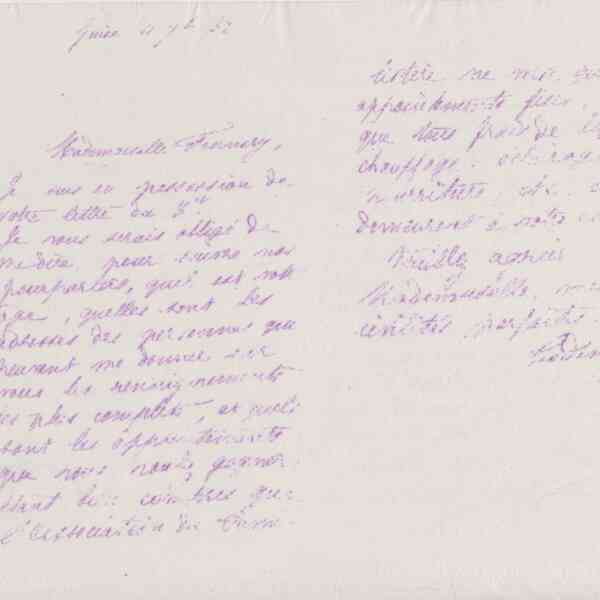 Mademoiselle
Je suis en possession de
votre lettre du 5
Je vous serais obligé de
me dire, pour suivre nos
pourparlers, quel est votre
âge, quelles sont les
adresses des personnes qui
peuvent me donner sur
vous les renseignements
les plus complets, et quels
sont les appointements
que vous voulez gagner
étant bien entendu que
l'association du
ne
appointements fixes,
que tous frais de
chauffage, éclairage
nourriture, etc.
demeurent à votre
Veuillez agréer
Mademoiselle, mes
civilités parfaites.